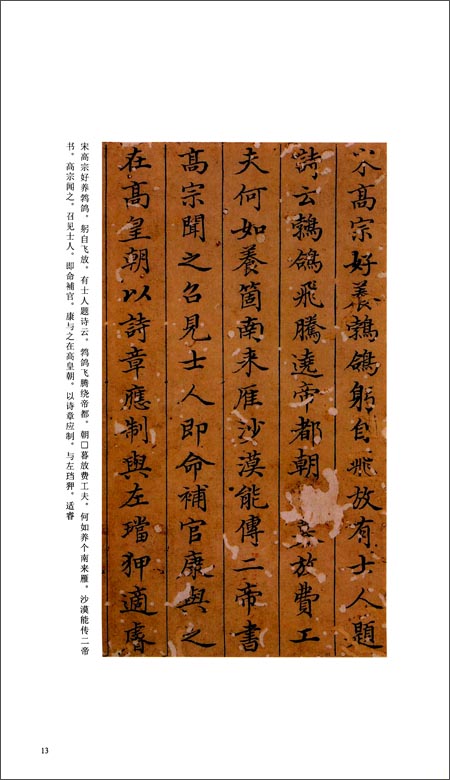 髙宗好養鵓鴿躬自飛放有士人題
詩云鵓鴿飛騰遶帝都朝放費工
夫何如養箇南来雁沙漠能傳二帝書
髙宗聞之召見士人即命補官康與之
在髙皇朝以詩章應制與左璫狎適睿
宋高宗好养鹁鸽，躬自飞放，有士人题诗云，鹁鸽飞腾绕帝都，朝□暮放费工夫，何如养个南来雁，沙漠能传二帝
书。高宗闻之，召见士人，即命補官。康与之在高皇朝，以诗章应制，与左珰狎，适睿
13